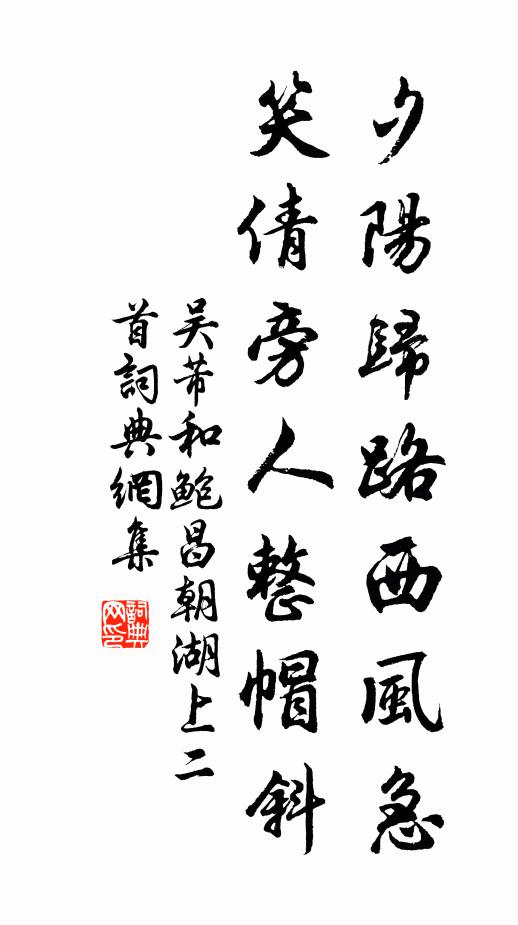 夕陽歸路西風急
笑倩旁人整帽斜
吴芾和鲍昌朝湖上二
首詞典網集
詞典
网印